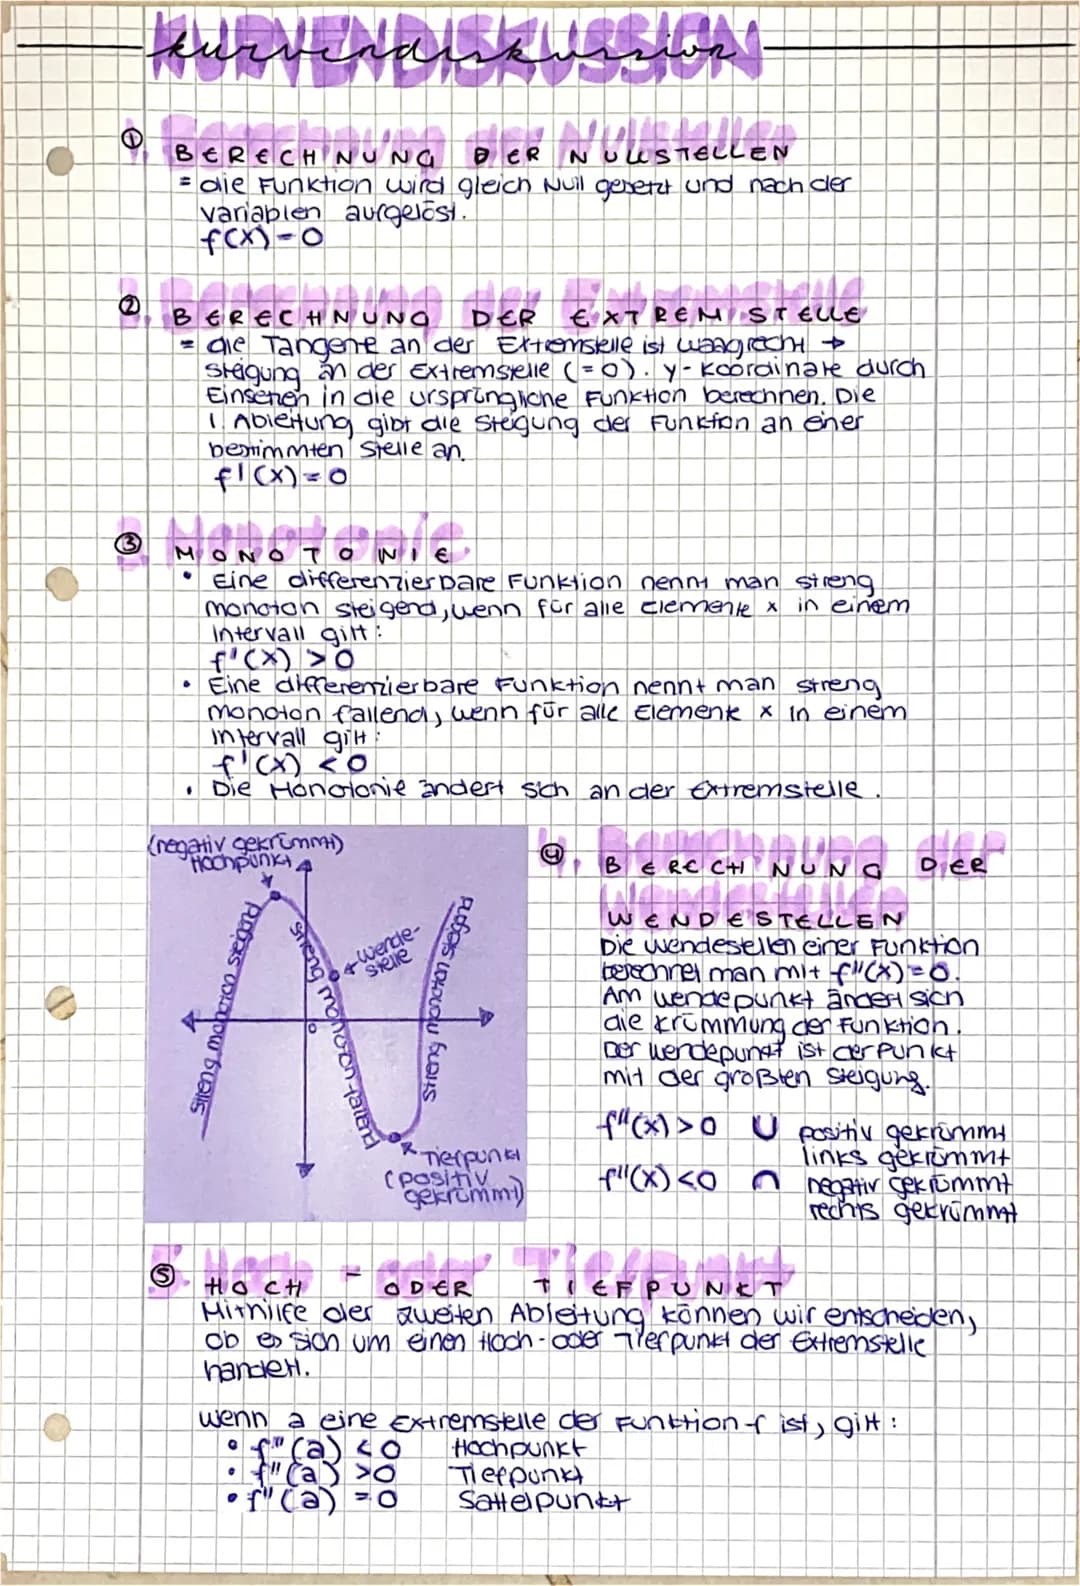 KURVENDISKUSSION
kurvendiskussion
1. Berechnung der Nullstellen
① BERECHNUNG DER NULLSTELLEN
= die Funktion wird gleich Null gesetzt und nach der
Variablen aufgelöst.
f(x) = 0
2. Berechnung der Extremstelle
② BERECHNUNG DER EXTREMSTELLE
= die Tangente an der Extremstelle ist waagrecht →
Steigung an der Extremstelle (= 0). y-Koordinate durch
Einsetzen in die ursprüngliche Funktion berechnen. Die
1. Ableitung gibt die Steigung der Funktion an einer
bestimmten Stelle an.
f'(x) = 0
3. Monotonie
③ MONOTONIE
• Eine differenzierbare Funktion nennt man streng
monoton steigend, wenn für alle Elemente x in einem
Intervall gilt:
f'(x) > 0
• Eine differenzierbare Funktion nennt man streng
monoton fallend, wenn für alle Elemente x in einem
Intervall gilt:
f'(x) < 0
• Die Monotonie ändert sich an der Extremstelle.
(negativ gekrümmt)
Hochpunkt
streng monoton steigend
streng monoton fallend
Wende-
stelle
streng monoton steigend
0
Tiefpunkt
(positiv
gekrümmt)
4. Berechnung der
④ BERECHNUNG DER
Wendestellen
WENDESTELLEN
Die Wendestellen einer Funktion
berechnet man mit f''(x) = 0.
Am Wendepunkt ändert sich
die Krümmung der Funktion.
Der Wendepunkt ist der Punkt
mit der größten Steigung.
f''(x) > 0 ∪ positiv gekrümmt
links gekrümmt
f''(x) < 0 ∩ negativ gekrümmt
rechts gekrümmt
5. Hoch- oder Tiefpunkt
⑤ HOCH- ODER TIEFPUNKT
Mithilfe der zweiten Ableitung können wir entscheiden,
ob es sich um einen Hoch- oder Tiefpunkt der Extremstelle
handelt.
Wenn a eine Extremstelle der Funktion f ist, gilt:
• f''(a) < 0 Hochpunkt
• f''(a) > 0 Tiefpunkt
• f''(a) = 0 Sattelpunkt